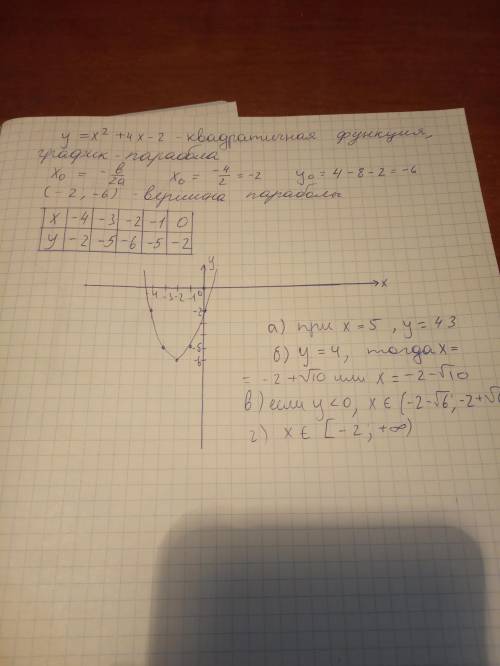 y = x² + 4x - 2 - квадратичная функция,
график - парабола
x₀ = -в/2a x₀ = -4/2 = -2 y₀ = 4 - 8 - 2 = -6
(-2, -6) - вершина параболы
x -4 -3 -2 -1 0
y -2 -5 -6 -5 -2
y
-4 -3 -2 -1 0 x
-2
-5
-6
а) при x = 5, y = 43
б) y = 4, тогда x =
= -2 + √10 или x = -2 - √10
в) если y < 0, x ∈ (-2-√6; -2+√6
г) x ∈ [-2; +∞)